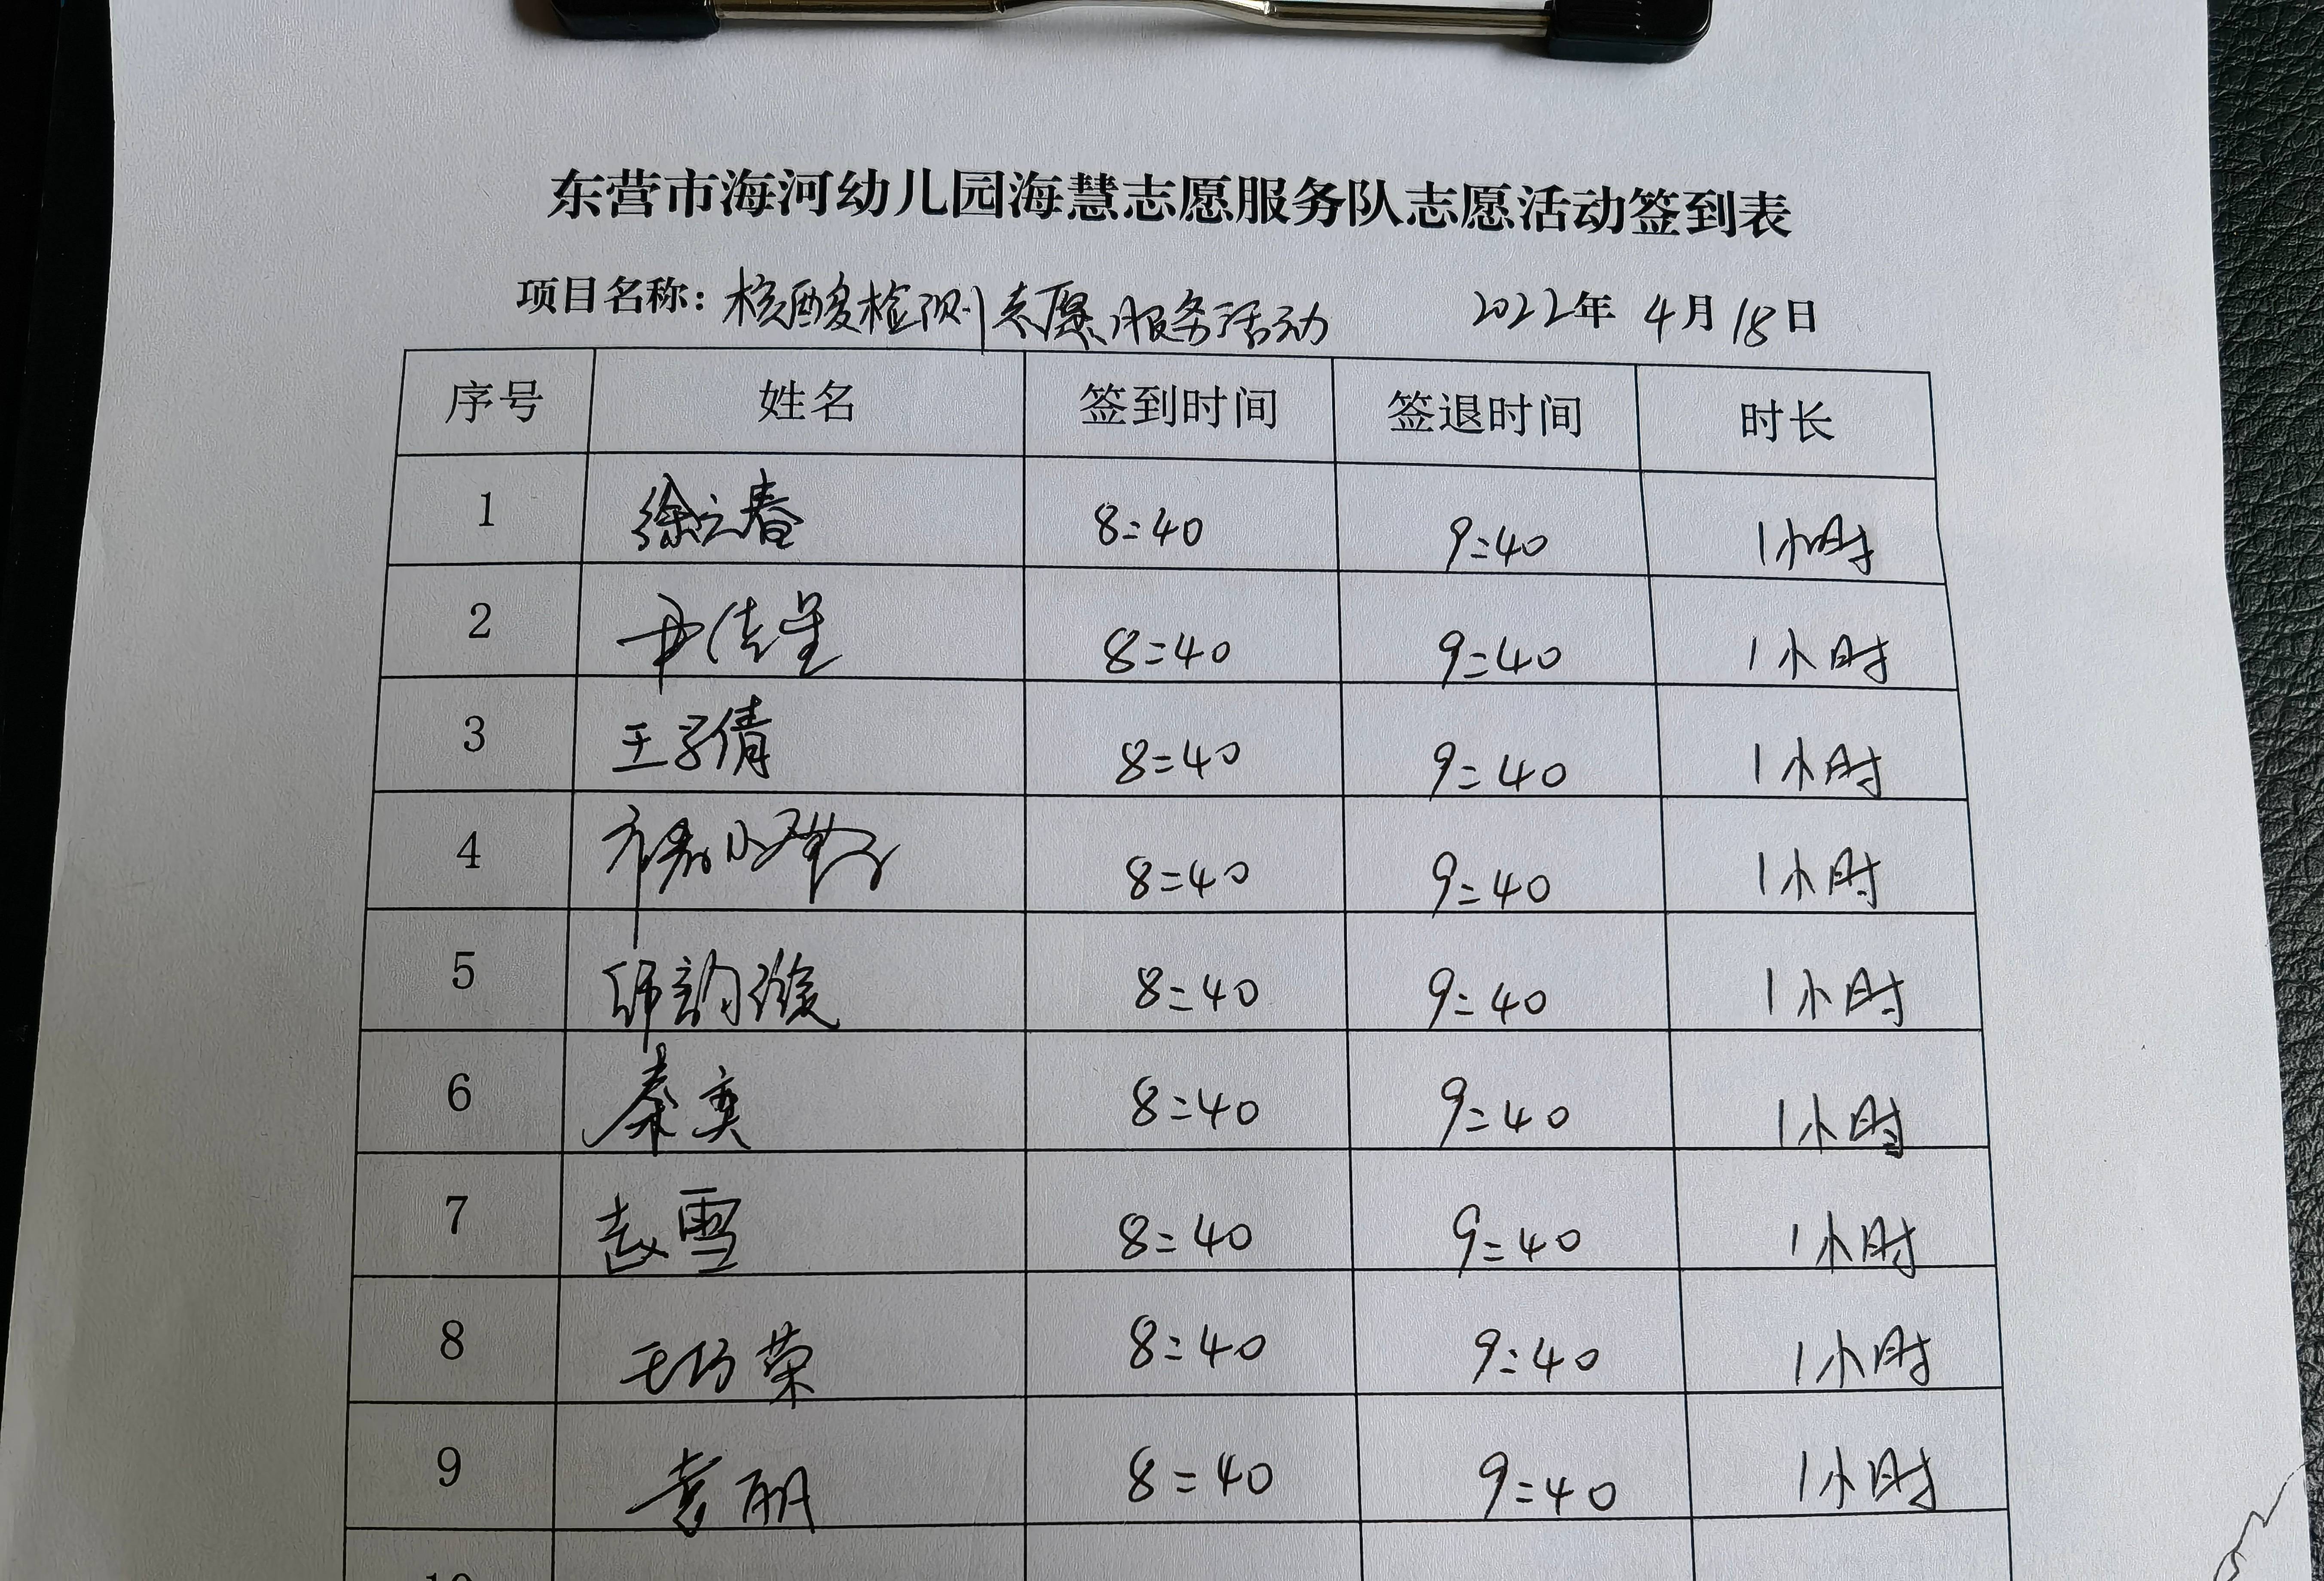 东营市海河幼儿园海慧志愿服务队志愿活动签到表
项目名称：核酸检测志愿服务活动 2022年 4月18日
序号 姓名 签到时间 签退时间 时长
1 徐立春 8:40 9:40 1小时
2 8:40 9:40 1小时
3 王子倩 8:40 9:40 1小时
4 8:40 9:40 1小时
5 8:40 9:40 1小时
6 秦奕 8:40 9:40 1小时
7 赵雪 8:40 9:40 1小时
8 王巧荣 8:40 9:40 1小时
9 袁丽 8:40 9:40 1小时
10